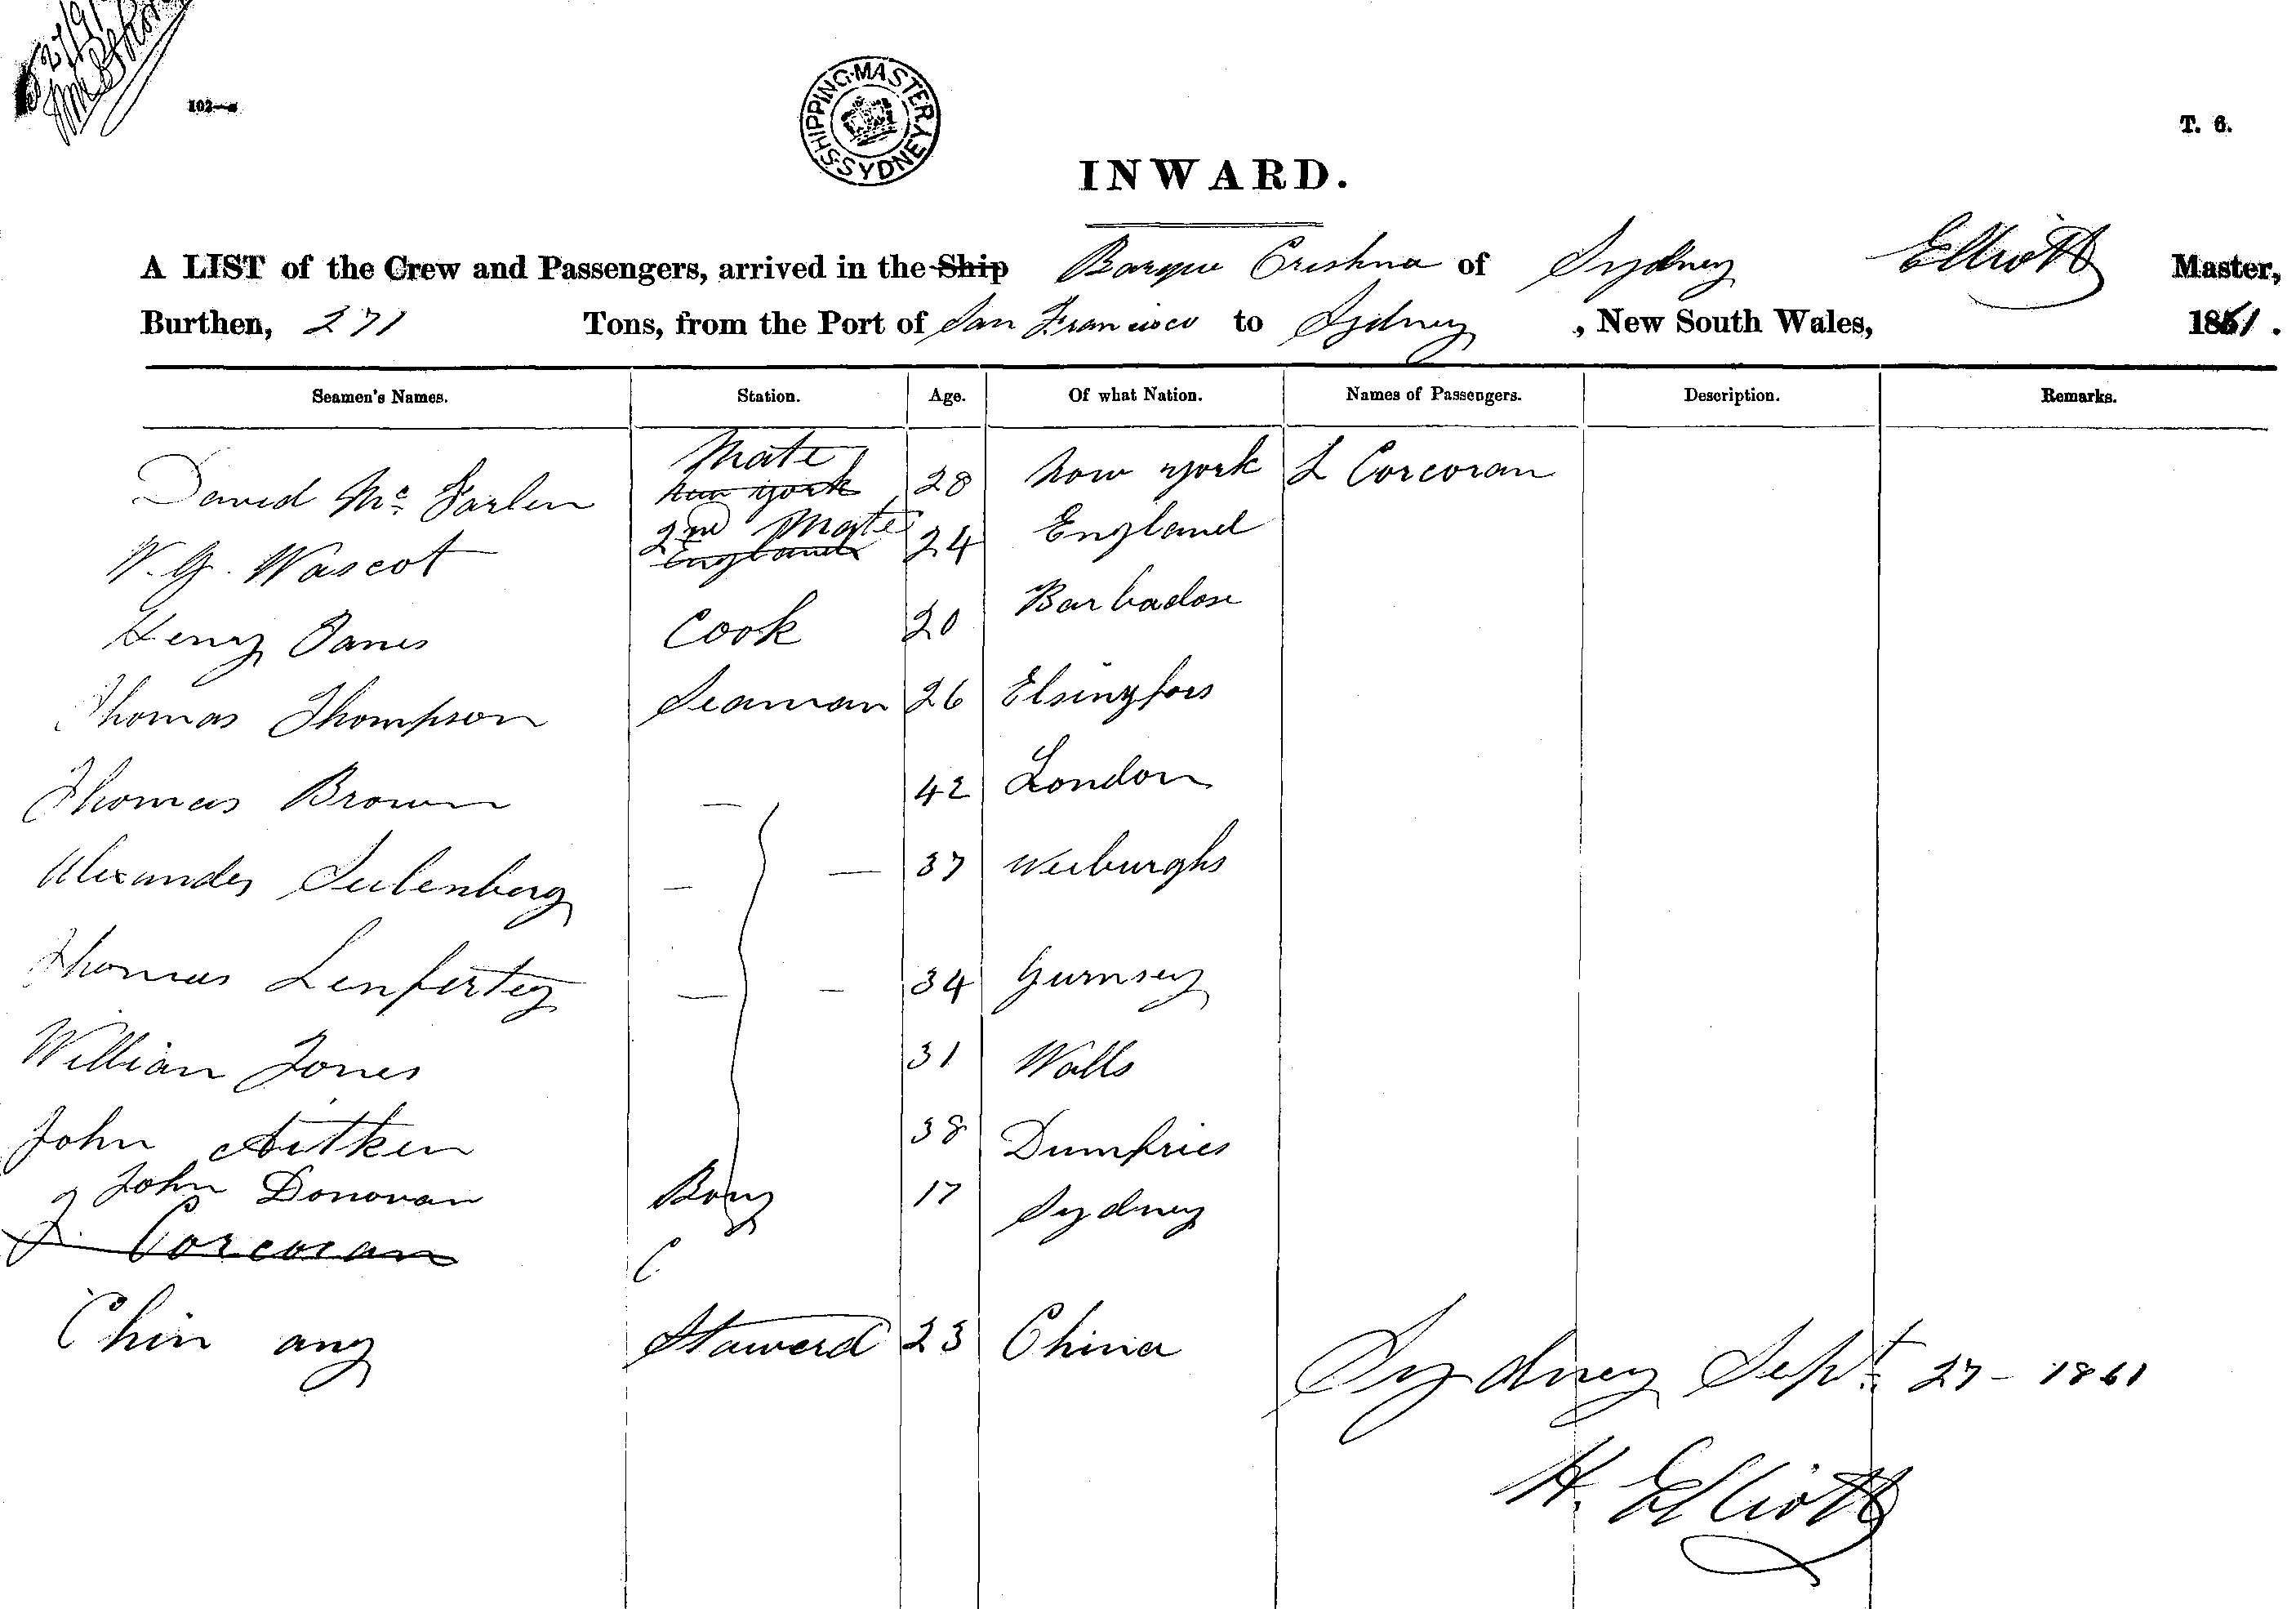 102—a
SHIPPING MASTER SYDNEY
T. 6.
INWARD.
A LIST of the Crew and Passengers, arrived in the Ship Barque Crishna of Sydney Elliott Master,
Burthen, 271 Tons, from the Port of San Francisco to Sydney, New South Wales, 1861.
Seamen's Names. Station. Age. Of what Nation. Names of Passengers. Description. Remarks.
David Mc Farlen Mate new york 28 new york L Corcoran
W. G. Wascot 2nd Mate England 24 England
Henry Janes Cook 20 Barbadose
Thomas Thompson Seaman 26 Elsingfors
Thomas Brown — 42 London
Alexander Sulenberg — — 37 Wiburghs
Thomas Lenfertey — — 34 Gurnsey
William Jones 31 Walls
John Aitken 38 Dumfries
John Donovan Boy 17 Sydney
J. Corcoran C
Chin ang Staward 23 China
Sydney Sept 27 - 1861
H. Elliott